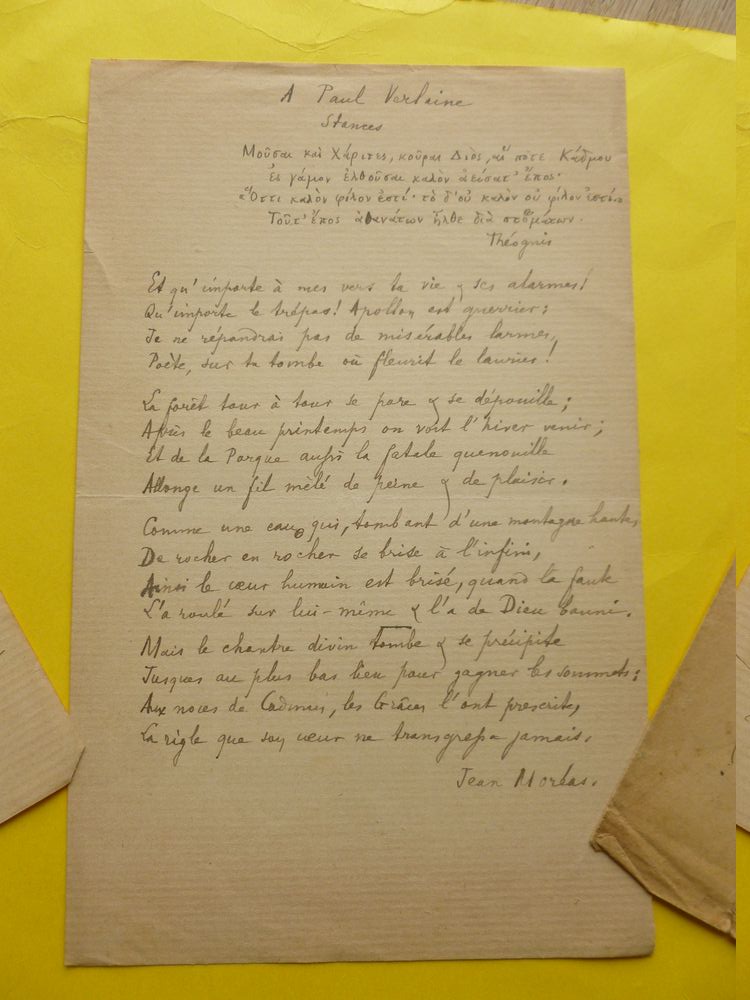 A Paul Verlaine
Stances
Μοῦσαι καὶ Χάριτες, κοῦραι Διὸς, αἵ ποτε Κάδμου
ἐς γάμον ἐλθοῦσαι καλὸν ἀείσατ' ἔπος·
Ὅττι καλὸν φίλον ἐστί· τὸ δ'οὐ καλὸν οὐ φίλον ἐστίν·
Τοῦτ' ἔπος ἀθανάτων ἦλθε διὰ στομάτων.
Théognis
Et qu'importe à mes vers ta vie & ses alarmes!
Qu'importe le trépas! Apollon est guerrier:
Je ne répandrai pas de misérables larmes,
Poète, sur ta tombe où fleurit le laurier!
La forêt tour à tour se pare & se dépouille;
Après le beau printemps on voit l'hiver venir;
Et de la Parque aussi la fatale quenouille
Allonge un fil mêlé de peine & de plaisir.
Comme une eau qui, tombant d'une montagne haute,
De rocher en rocher se brise à l'infini,
Ainsi le cœur humain est brisé, quand la faute
L'a roulé sur lui-même & l'a de Dieu banni.
Mais le chantre divin tombe & se précipite
Jusques au plus bas lieu pour gagner les sommets:
Aux noces de Cadmus, les Grâces l'ont prescrite,
La règle que son cœur ne transgresse jamais.
Jean Moréas.